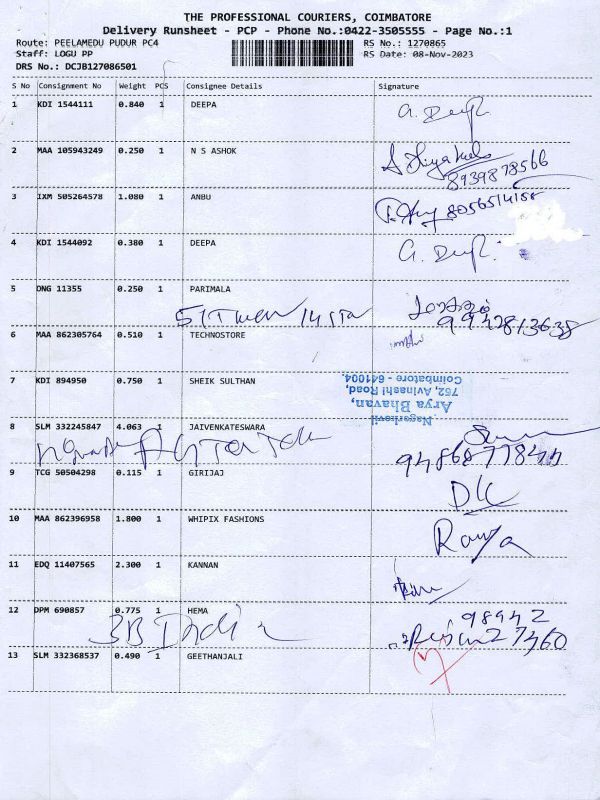 THE PROFESSIONAL COURIERS, COIMBATORE
Delivery Runsheet - PCP - Phone No.:0422-3505555 - Page No.:1
Route: PEELAMEDU PUDUR PC4 RS No.: 1270865
Staff: LOGU PP RS Date: 08-Nov-2023
DRS No.: DCJB127086501
S No Consignment No Weight PCS Consignee Details Signature
1 KDI 1544111 0.840 1 DEEPA
G. Deepa
2 MAA 105943249 0.250 1 N S ASHOK
8939878566
3 IXM 505264578 1.080 1 ANBU
8056514158
4 KDI 1544092 0.380 1 DEEPA
G. Deepa
5 DNG 11355 0.250 1 PARIMALA
9942813638
6 MAA 862305764 0.510 1 TECHNOSTORE
7 KDI 894950 0.750 1 SHEIK SULTHAN
Nagarkovil
Arya Bhavan,
752, Avinashi Road,
Coimbatore - 641004.
8 SLM 332245847 4.063 1 JAIVENKATESWARA
9486877844
9 TCG 50504298 0.115 1 GIRIJAJ
DK
10 MAA 862396958 1.800 1 WHIPIX FASHIONS
Ramya
11 EDQ 11407565 2.300 1 KANNAN
12 DPM 690857 0.775 1 HEMA
3B India
98942
27460
13 SLM 332368537 0.490 1 GEETHANJALI